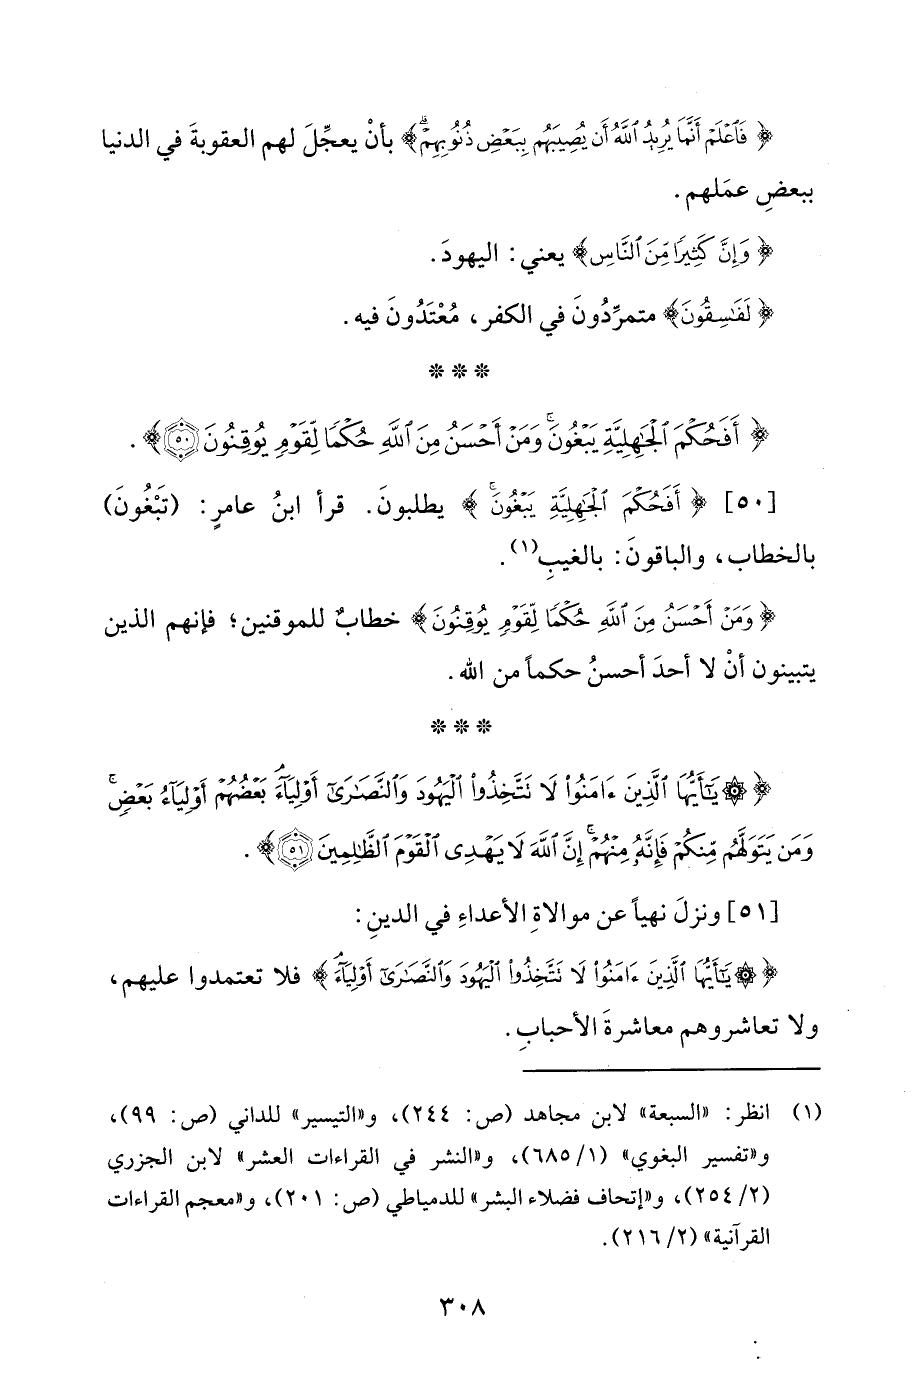 ﴿ فَاعْلَمْ أَنَّمَا يُرِيدُ اللَّهُ أَن يُصِيبَهُم بِبَعْضِ ذُنُوبِهِمْ ۗ ﴾ بأنْ يعجِّلَ لهم العقوبةَ في الدنيا
ببعضِ عمَلهم .
﴿ وَإِنَّ كَثِيرًا مِّنَ النَّاسِ ﴾ يعني : اليهودَ .
﴿ لَفَاسِقُونَ ﴾ متمرِّدُونَ في الكفر ، مُعْتَدُونَ فيه .
* * *
﴿ أَفَحُكْمَ الْجَاهِلِيَّةِ يَبْغُونَ ۚ وَمَنْ أَحْسَنُ مِنَ اللَّهِ حُكْمًا لِّقَوْمٍ يُوقِنُونَ ٥٠ ﴾ .
[٥٠] ﴿ أَفَحُكْمَ الْجَاهِلِيَّةِ يَبْغُونَ ۚ ﴾ يطلبونَ . قرأ ابنُ عامرٍ : (تَبْغُونَ)
بالخطاب ، والباقونَ : بالغيبِ(١) .
﴿ وَمَنْ أَحْسَنُ مِنَ اللَّهِ حُكْمًا لِّقَوْمٍ يُوقِنُونَ ﴾ خطابٌ للموقنين ؛ فإنهم الذين
يتبينون أنْ لا أحدَ أحسنُ حكماً من الله .
* * *
﴿ ۞ يَا أَيُّهَا الَّذِينَ ءَامَنُوا لَا تَتَّخِذُوا الْيَهُودَ وَالنَّصَارَىٰٓ أَوْلِيَاءَ ۘ بَعْضُهُمْ أَوْلِيَاءُ بَعْضٍ ۚ
وَمَن يَتَوَلَّهُم مِّنكُمْ فَإِنَّهُ مِنْهُمْ ۗ إِنَّ اللَّهَ لَا يَهْدِي الْقَوْمَ الظَّالِمِينَ ٥١ ﴾ .
[٥١] ونزلَ نهياً عن موالاةِ الأعداءِ في الدينِ :
﴿ ۞ يَا أَيُّهَا الَّذِينَ ءَامَنُوا لَا تَتَّخِذُوا الْيَهُودَ وَالنَّصَارَىٰٓ أَوْلِيَاءَ ۘ ﴾ فلا تعتمدوا عليهم ،
ولا تعاشروهم معاشرةَ الأحبابِ .
(١) انظر : «السبعة» لابن مجاهد (ص : ٢٤٤) ، و«التيسير» للداني (ص : ٩٩) ،
و«تفسير البغوي» (١/ ٦٨٥) ، و«النشر في القراءات العشر» لابن الجزري
(٢/ ٢٥٤) ، و«إتحاف فضلاء البشر» للدمياطي (ص : ٢٠١) ، و«معجم القراءات
القرآنية» (٢/ ٢١٦) .
٣٠٨